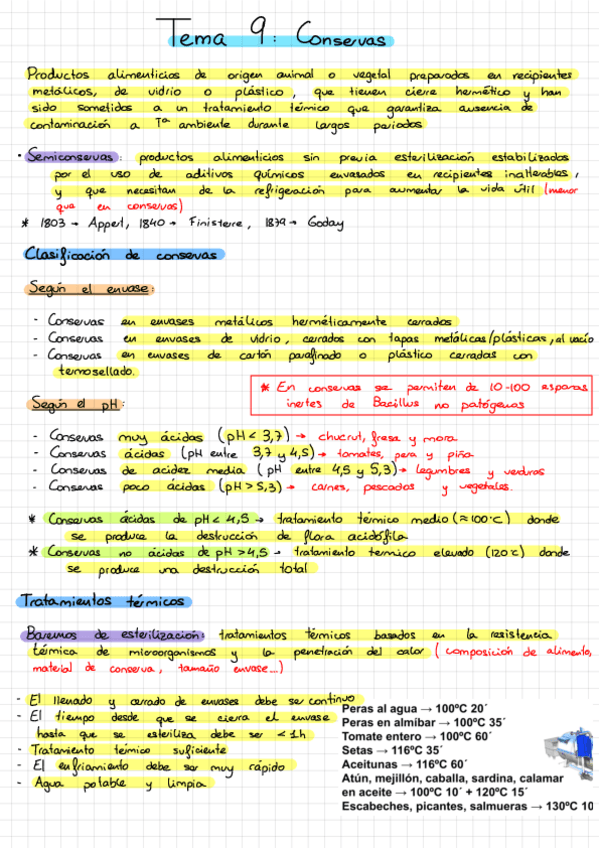 Tema 9: Conservas
Productos alimenticios de origen animal o vegetal preparados en recipientes
metálicos, de vidrio o plástico, que tienen cierre hermético y han
sido sometidos a un tratamiento térmico que garantiza ausencia de
contaminación a Tª ambiente durante largos periodos
· Semiconservas: productos alimenticios sin previa esterilización estabilizados
por el uso de aditivos químicos envasados en recipientes inalterables,
y que necesitan de la refrigeración para aumentar la vida útil (menor
que en conservas)
* 1803 → Appert, 1840 → Finisterre, 1879 → Goday
Clasificación de conservas
Según el envase:
- Conservas en envases metálicos herméticamente cerrados
- Conservas en envases de vidrio, cerrados con tapas metálicas/plásticas, al vacío
- Conservas en envases de cartón parafinado o plástico cerradas con
termosellado.
* En conservas se permiten de 10-100 esporas
inertes de Bacillus no patógenas
Según el pH:
- Conservas muy ácidas (pH < 3,7) → chucrut, fresa y mora
- Conservas ácidas (pH entre 3,7 y 4,5) → tomates, pera y piña
- Conservas de acidez media (pH entre 4,5 y 5,3) → legumbres y verduras
- Conservas poco ácidas (pH > 5,3) → carnes, pescados y vegetales.
* Conservas ácidas de pH < 4,5 → tratamiento térmico medio (≈100°C) donde
se produce la destrucción de flora acidófila
* Conservas no ácidas de pH > 4,5 → tratamiento termico elevado (120°C) donde
se produce una destrucción total
Tratamientos térmicos
Baremos de esterilización: tratamientos térmicos basados en la resistencia
térmica de microorganismos y la penetración del calor (composición de alimento,
material de conserva, tamaño envase...)
- El llenado y cerrado de envases debe ser continuo
- El tiempo desde que se cierra el envase
hasta que se esteriliza debe ser < 1h
- Tratamiento térmico suficiente
- El enfriamiento debe ser muy rápido
- Agua potable y limpia
Peras al agua → 100ºC 20´
Peras en almíbar → 100ºC 35´
Tomate entero → 100ºC 60´
Setas → 116ºC 35´
Aceitunas → 116ºC 60´
Atún, mejillón, caballa, sardina, calamar
en aceite → 100ºC 10´ + 120ºC 15´
Escabeches, picantes, salmueras → 130ºC 10